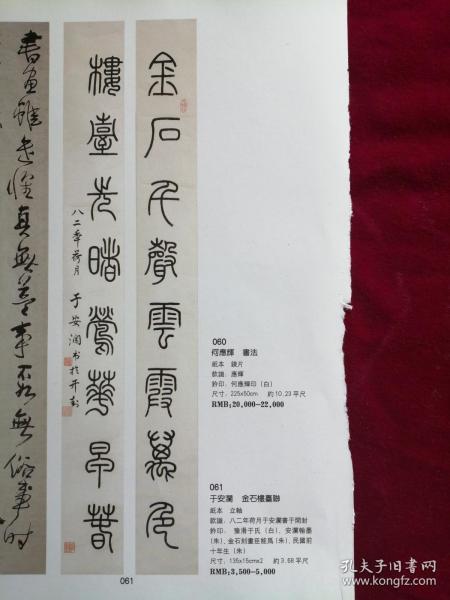 金石千聲雲霞萬色
樓臺先曙鶯華早春
八二年荷月 于安澜书於开封
書画雖 真無益事不如無俗事时
060
何應輝 書法
紙本 鏡片
款識：應輝
鈐印：何應輝印（白）
尺寸：225x50cm 約 10.23 平尺
RMB:20,000-22,000
061
于安瀾 金石樓臺聯
紙本 立軸
款識：八二年荷月于安瀾書于開封
鈐印：豫滑于氏（白）、安瀾翰墨
（朱）、金石刻畫臣能爲（朱）、民國前
十年生（朱）
尺寸：135x15cmx2 約 3.68 平尺
RMB:3,500-5,000
061
孔夫子旧书网